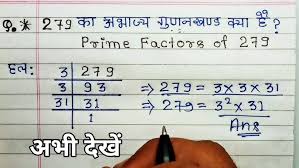 Q.* 279 का अभाज्य गुणनखण्ड क्या है ?
Prime Factors of 279
हल:
3 | 279
3 | 93 ⇒ 279 = 3 x 3 x 31
31 | 31 ⇒ 279 = 3² x 31
1
Ans
अभी देखें